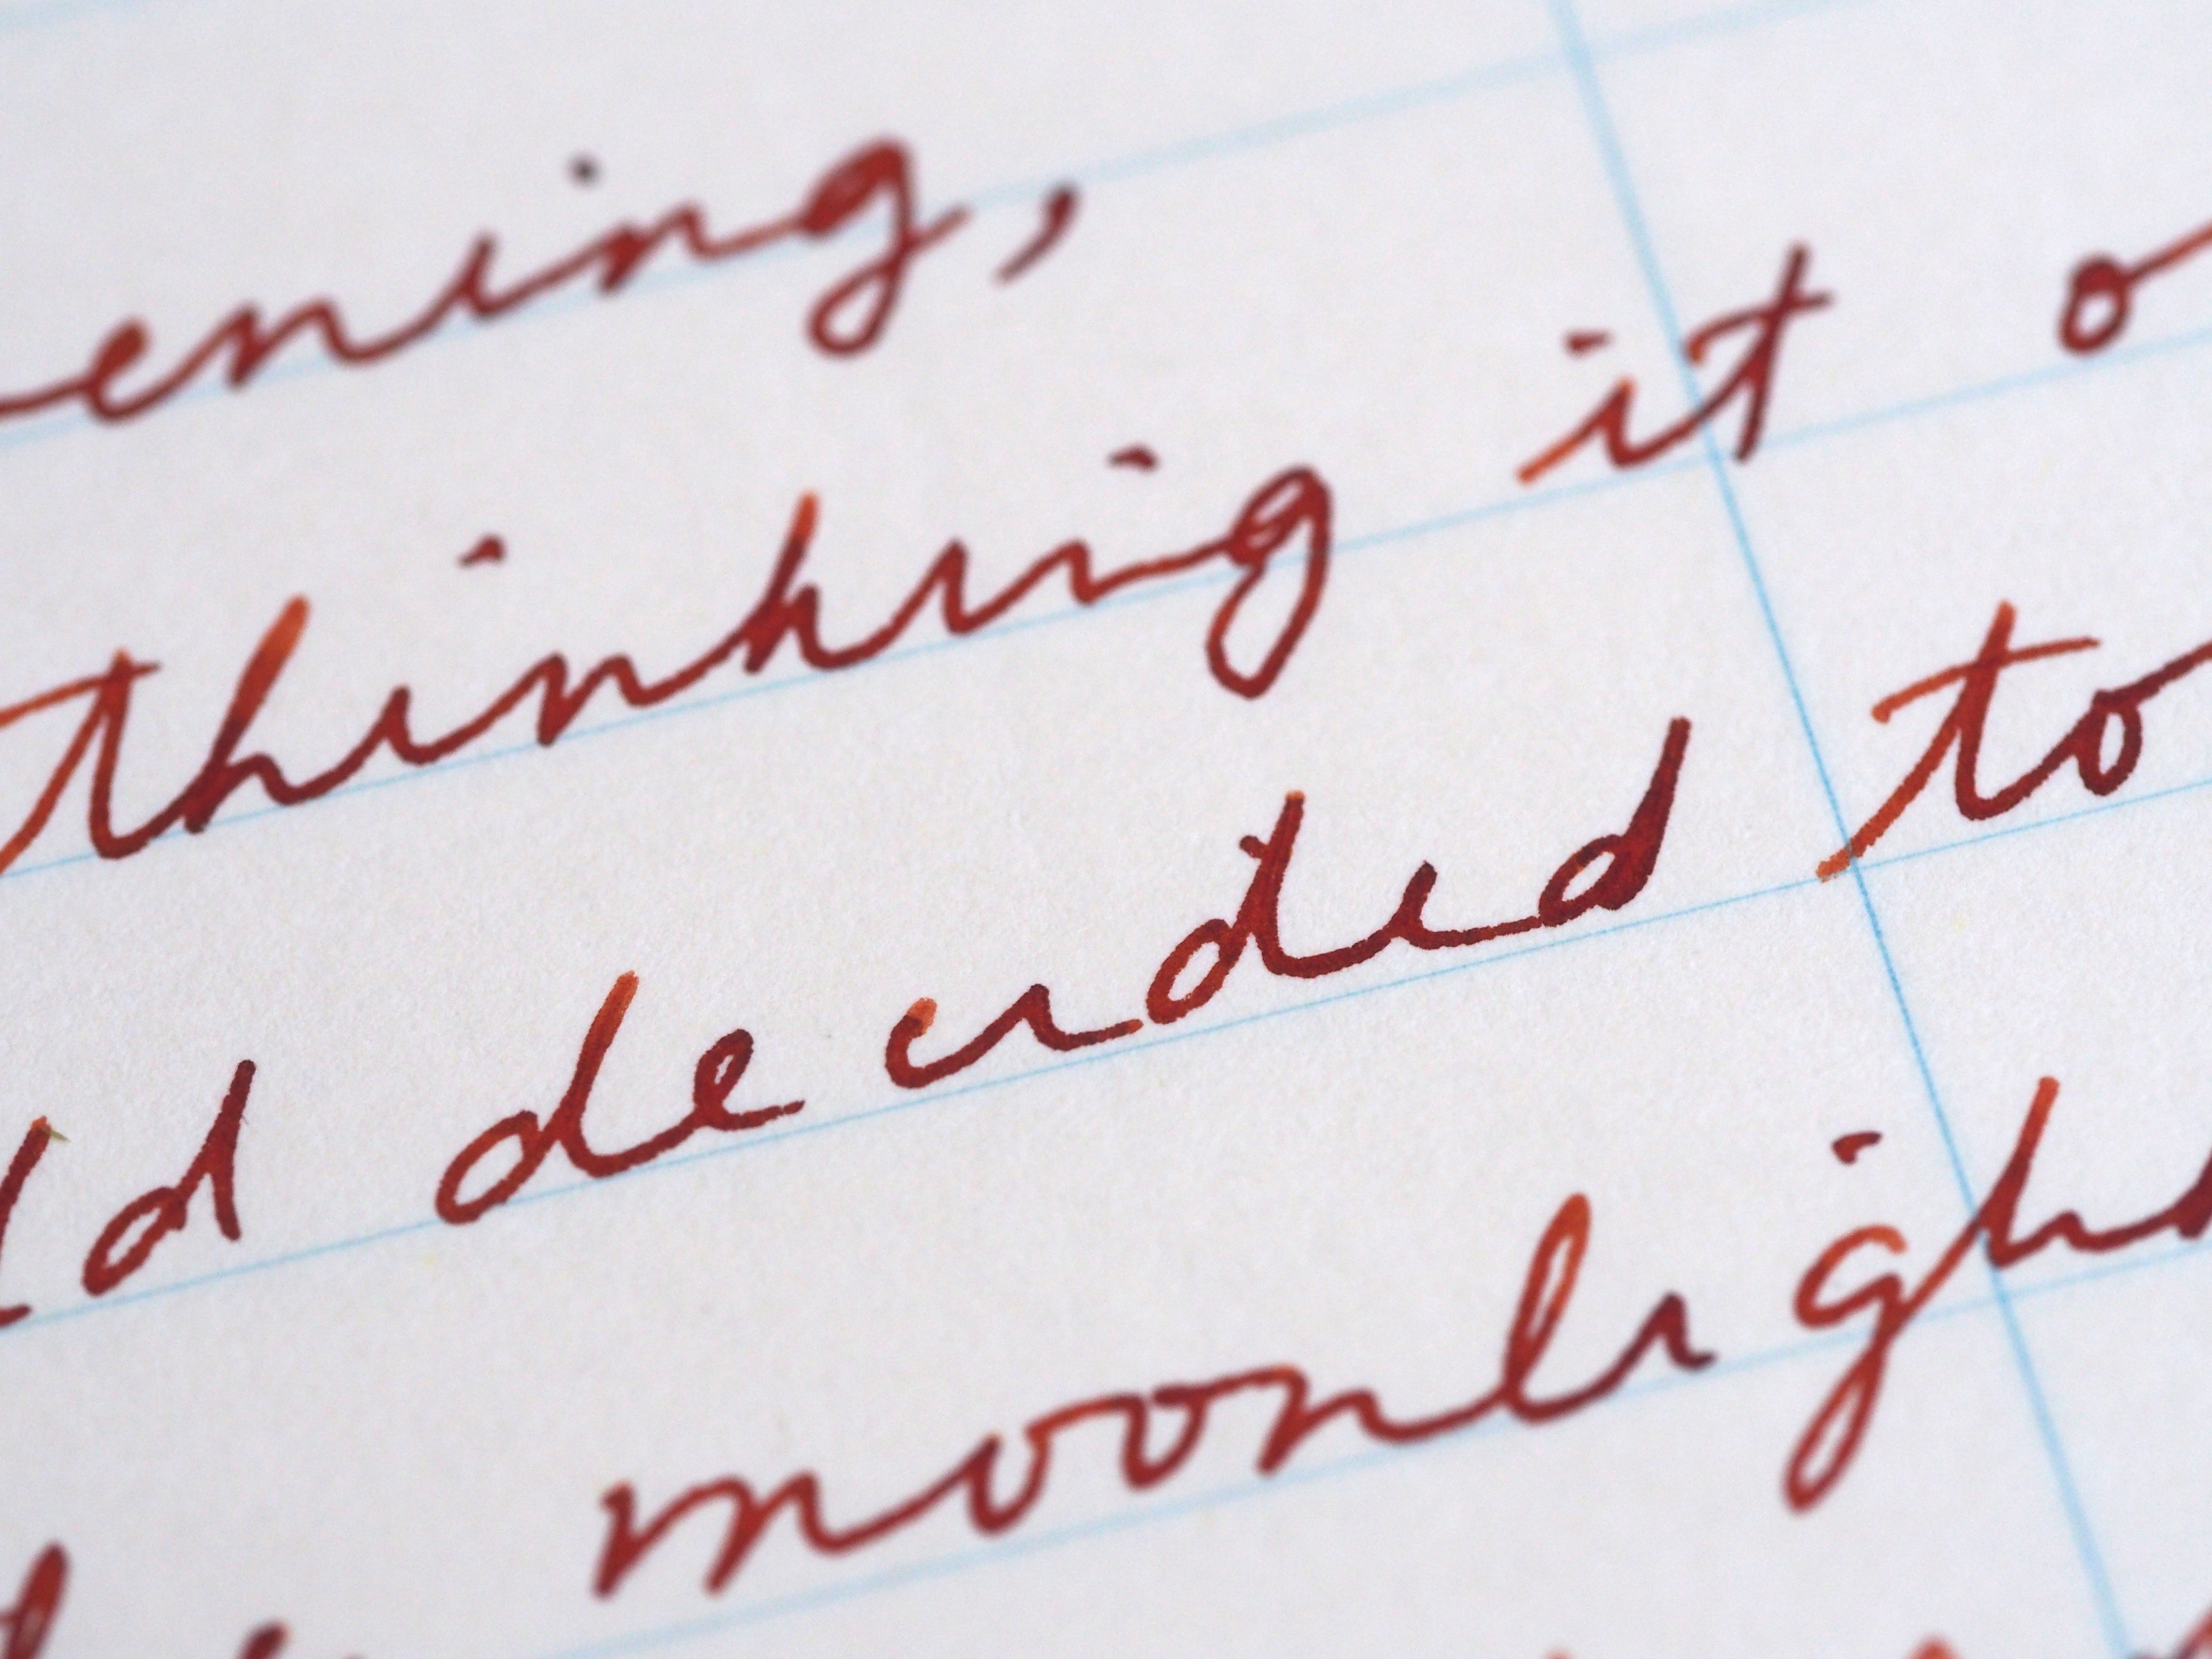 ening,
thinking it o
ld decided to
moonligh